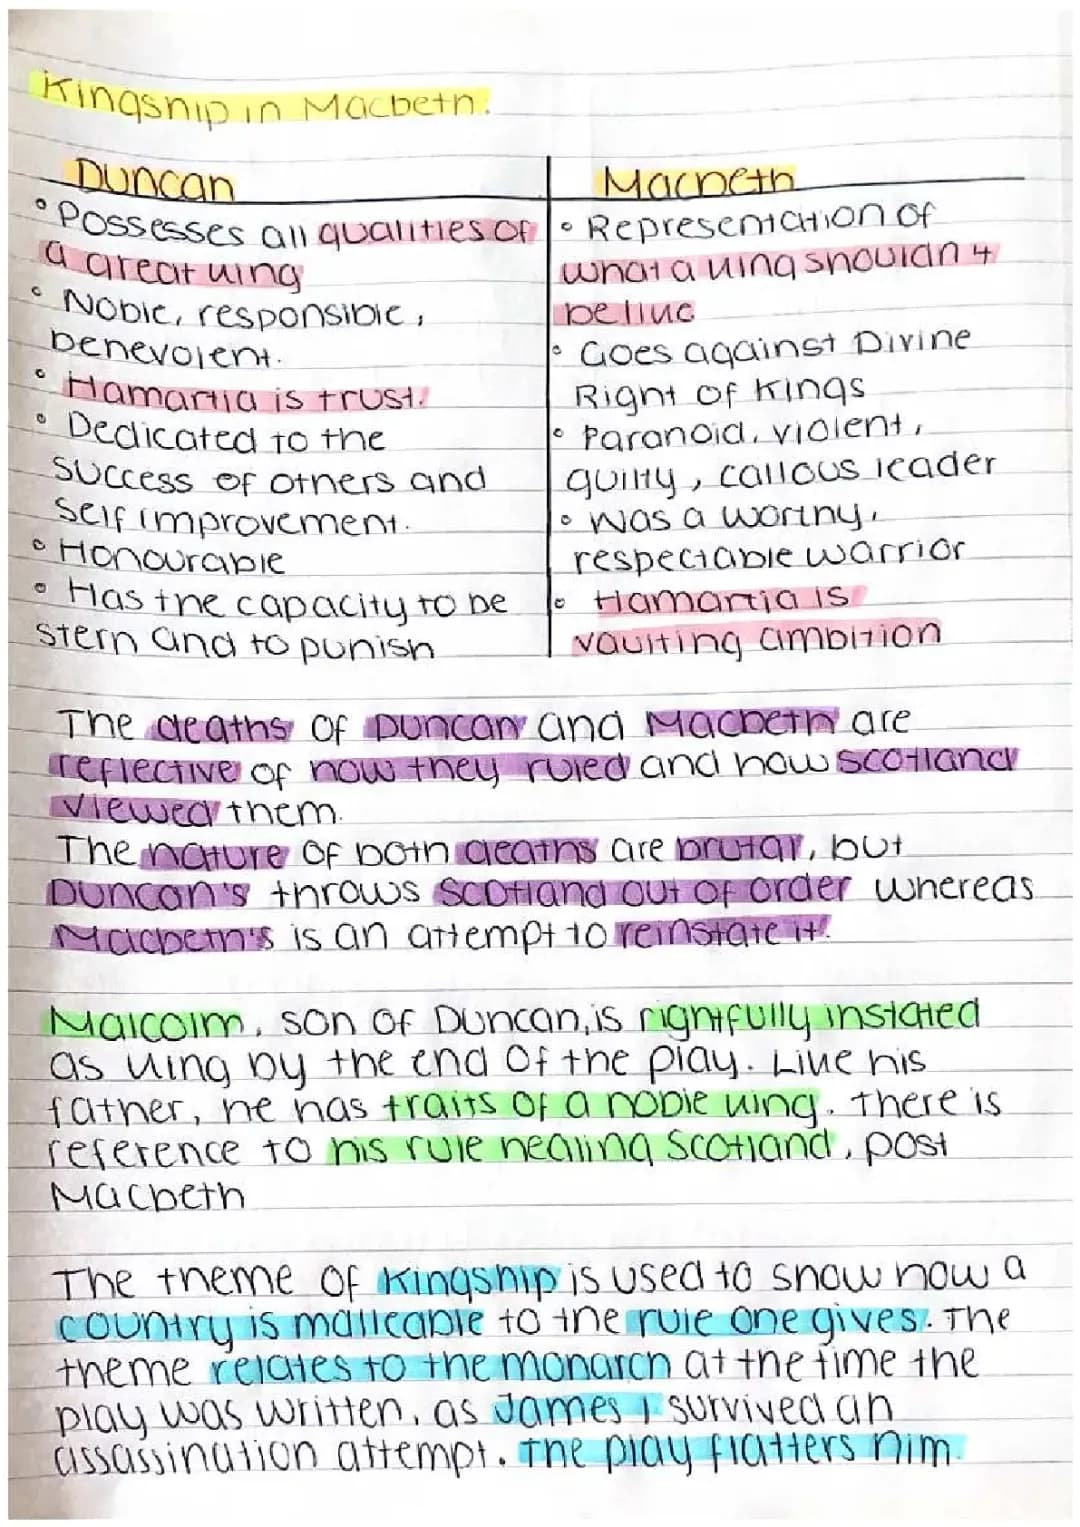 Kingship in Macbeth.
Duncan
• Possesses all qualities of
a great king
• Noble, responsible,
benevolent.
• Hamartia is trust.
• Dedicated to the
success of others and
self improvement.
• Honourable
• Has the capacity to be
stern and to punish
Macbeth
• Representation of
what a king shouldn't
be like
• Goes against Divine
Right of Kings
• Paranoid, violent,
guilty, callous leader
• Was a worthy,
respectable warrior
• Hamartia is
vaulting ambition
The deaths of Duncan and Macbeth are
reflective of how they ruled and how Scotland
viewed them.
The nature of both deaths are brutal, but
Duncan's throws Scotland out of order whereas
Macbeth's is an attempt to reinstate it.
Malcolm, son of Duncan, is rightfully instated
as king by the end of the play. Like his
father, he has traits of a noble king. There is
reference to his rule healing Scotland, post
Macbeth
The theme of Kingship is used to show how a
country is malleable to the rule one gives. The
theme relates to the monarch at the time the
play was written, as James I survived an
assassination attempt. The play flatters him.